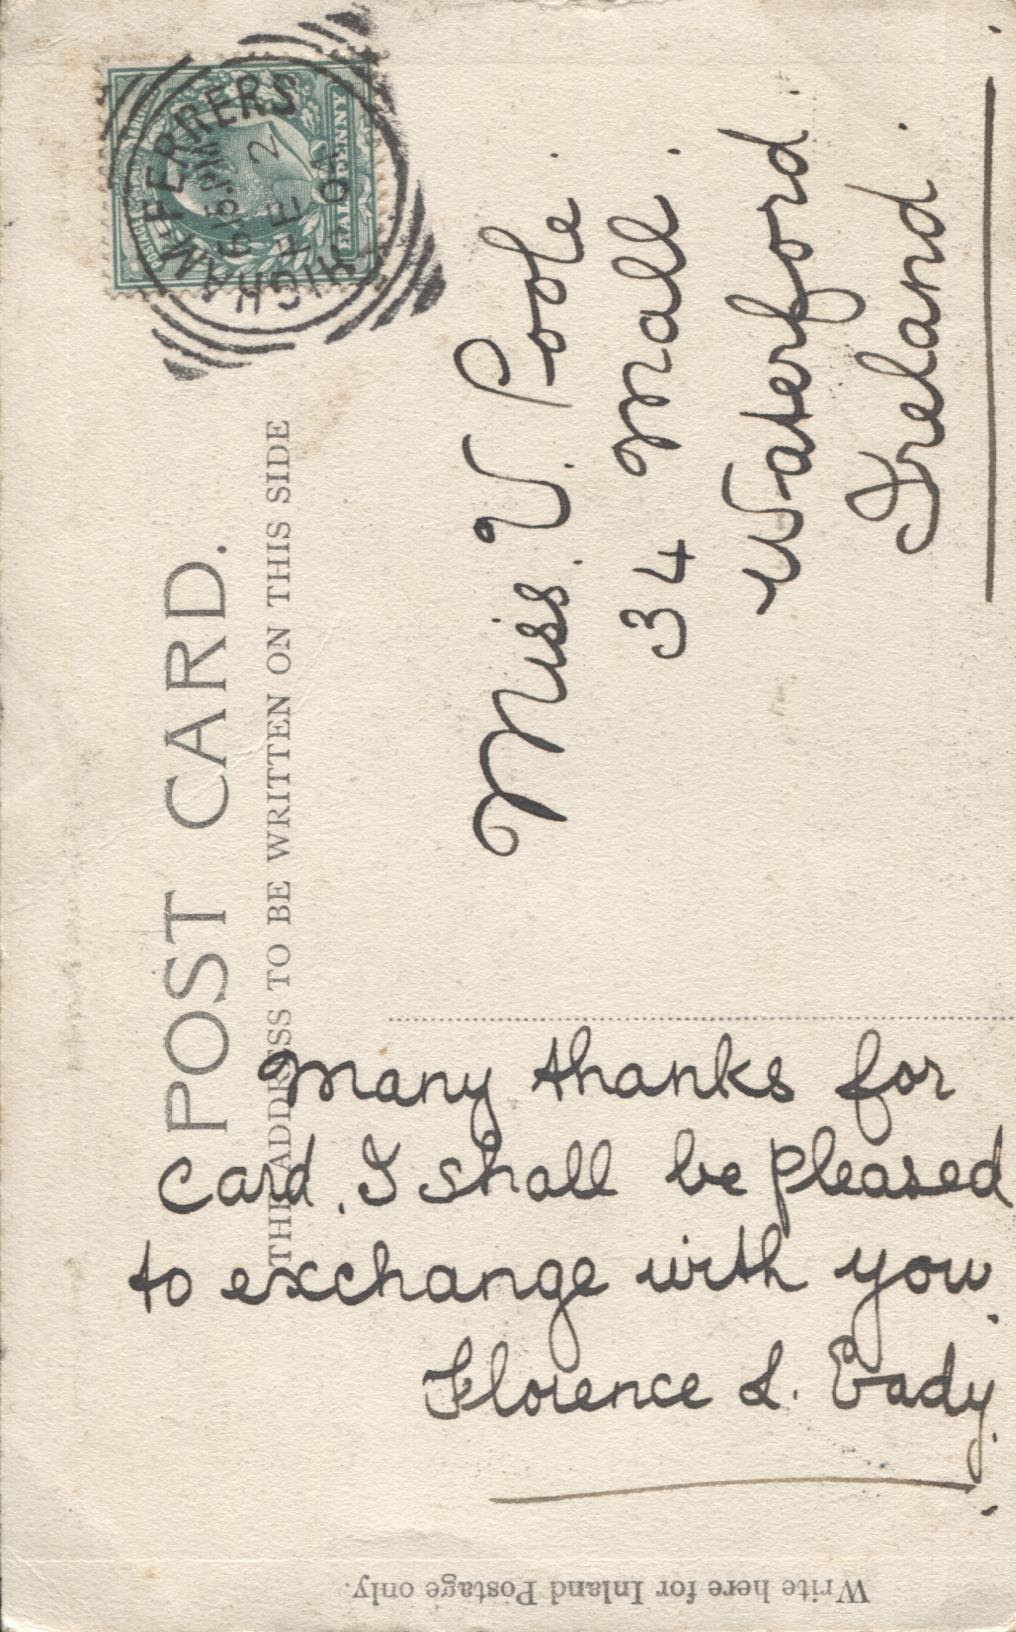 POST CARD.
THE ADDRESS TO BE WRITTEN ON THIS SIDE
POSTAGE
HALFPENNY
HIGHAM FERRERS
6.15 PM
FE 2
04
Miss. V. Poole.
34 Mall.
Waterford.
Ireland.
Many thanks for
card. I shall be pleased
to exchange with you.
Florence L. Eady.
Write here for Inland Postage only.